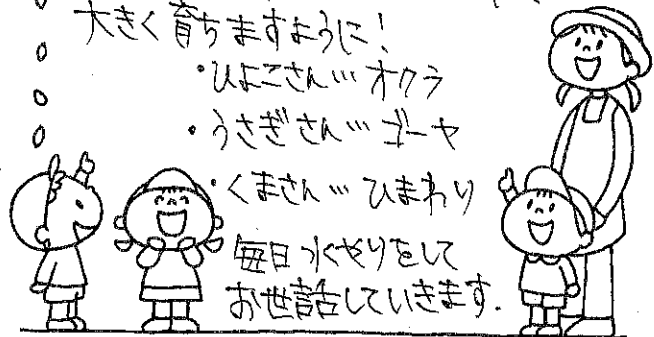 大きく育ちますように!
・ひよこさん…オクラ
・うさぎさん…ゴーヤ
・くまさん…ひまわり
毎日水やりをして
お世話していきます.